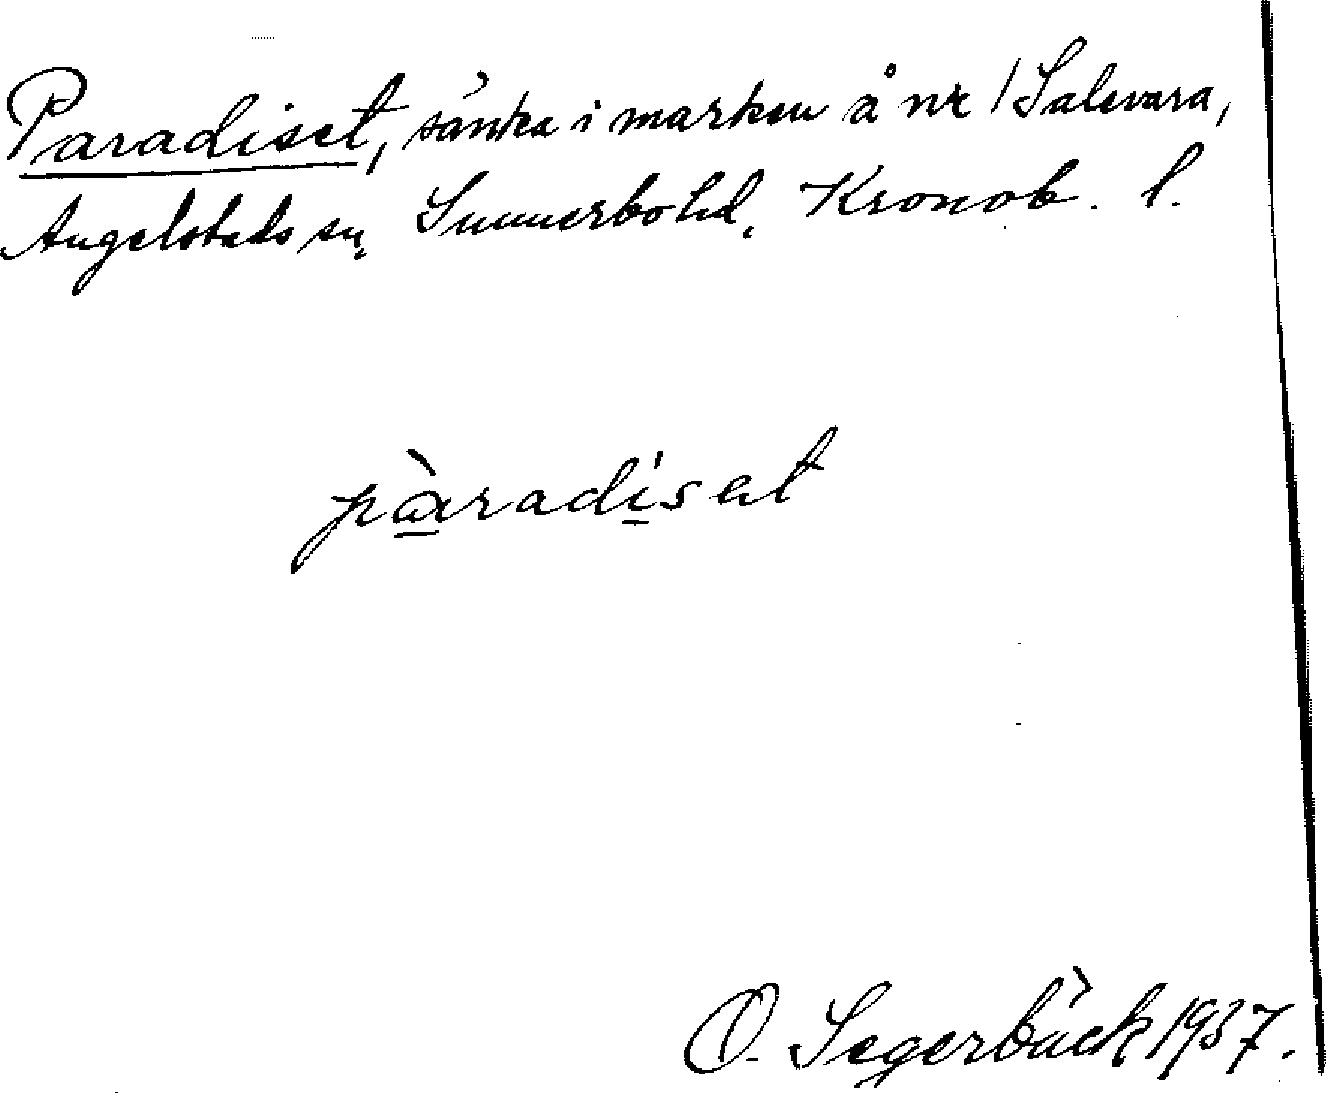 Paradiset, sänka i marken å nr 1 Salevara,
Angelstads sn, Sunnerbo hd, Kronob. l.
pàradiset
O. Segerbäck 1937.